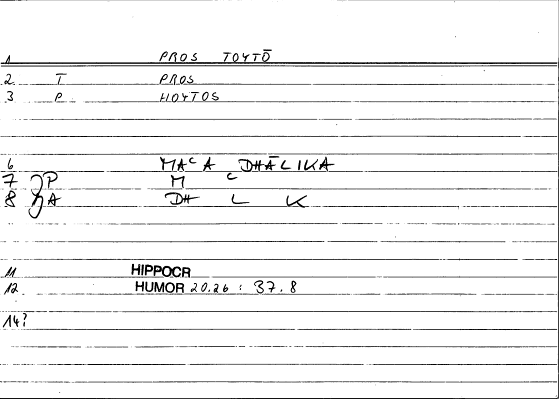 1 PROS TOYTŌ
2 T PROS
3 P HOYTOS
6 MAᶜA DHĀLIKA
7 P M ᶜ
8 A DH L K
11 HIPPOCR
12 HUMOR 20.26 : 37.8
14?